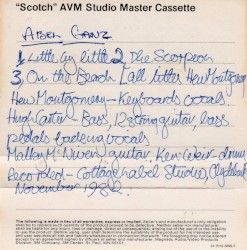 "Scotch" AVM Studio Master Cassette
ABEL GANZ
1 Little by little 2 The Scorpion
3, On the Beach [all titles Hew Montgomery
Hew Montgomery - Keyboards vocals.
Hugh Carter - Bass 12 string guitar bass
pedals backing vocals
Malky M. Niven guitar. Ken Weir - drums
Recorded - Cottage Label Studio, Clydebank
November 1982
The following is made in lieu of all warranties, express or implied. Seller's and manufacturer's only obligation
shall be to replace such quantity of the product proved to be defective. Neither seller nor manufacturer
shall be liable for any injury, loss or damage, direct or consequential, arising out of the use of or the inability
to use the product. Before using, user shall determine the suitability of the product for his intended use,
and user assumes all risk and liability whatsoever in connection therewith. The foregoing may not be altered
except by an agreement signed by officers of seller and manufacturer. Magnetic Audio/Video Products
Division, 3M Company, 3M Center, St. Paul, MN 55101